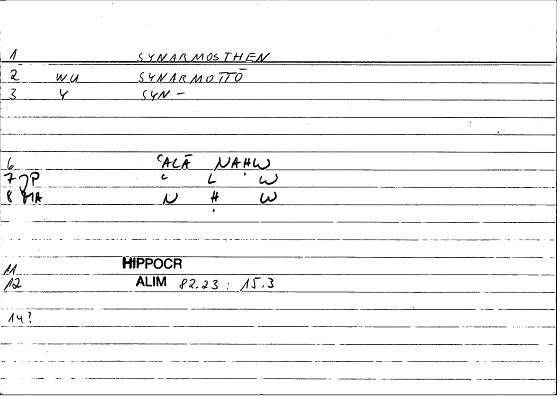 1 SYNARMOSTHEN
2 WU SYNARMOTTŌ
3 Y SYN-
6 ʿALĀ NAḤW
7 JP ʿ L W
8 MA N Ḥ W
11 HIPPOCR
12 ALIM 82.23 : 15.3
14?